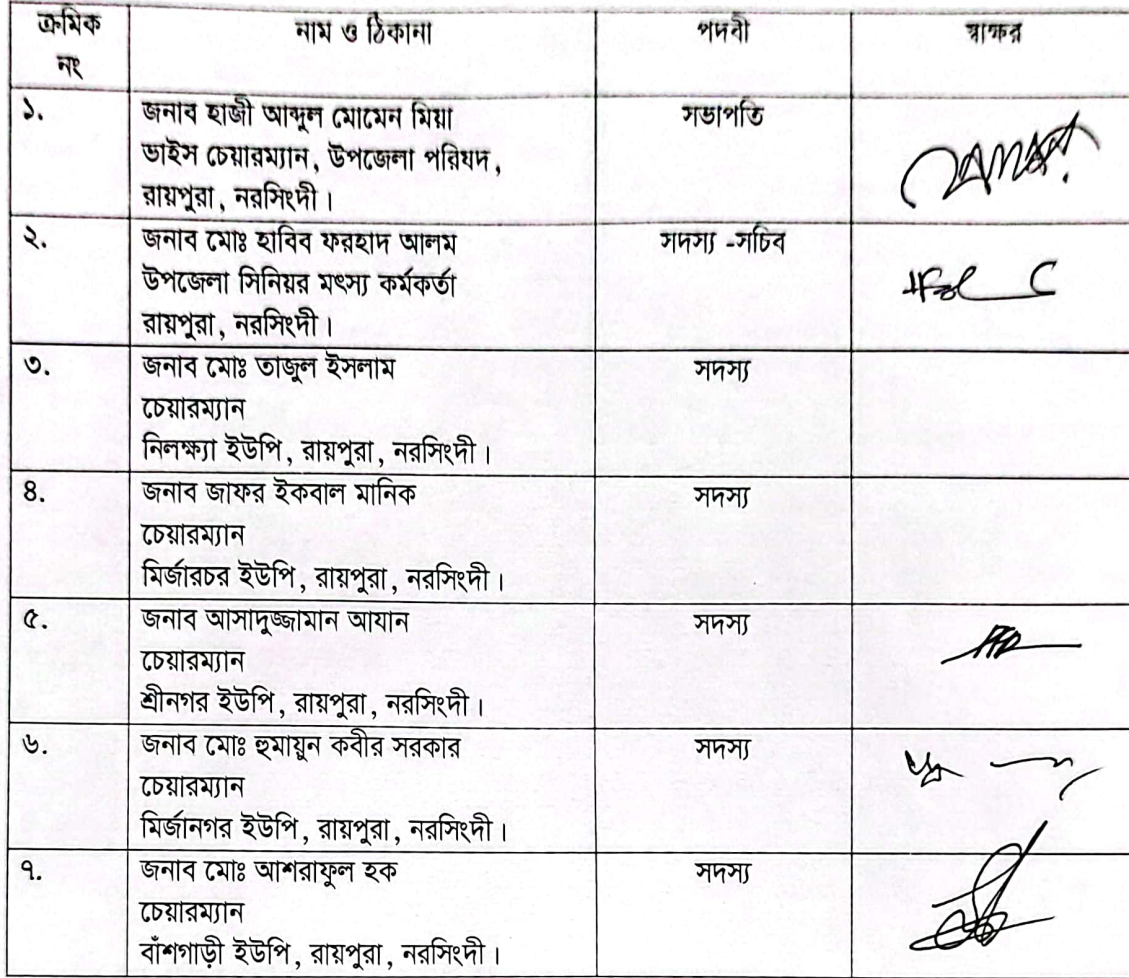 ক্রমিক নং নাম ও ঠিকানা পদবী স্বাক্ষর
১. জনাব হাজী আব্দুল মোমেন মিয়া সভাপতি
ভাইস চেয়ারম্যান, উপজেলা পরিষদ,
রায়পুরা, নরসিংদী।
২. জনাব মোঃ হাবিব ফরহাদ আলম সদস্য -সচিব
উপজেলা সিনিয়র মৎস্য কর্মকর্তা
রায়পুরা, নরসিংদী।
৩. জনাব মোঃ তাজুল ইসলাম সদস্য
চেয়ারম্যান
নিলক্ষ্যা ইউপি, রায়পুরা, নরসিংদী।
৪. জনাব জাফর ইকবাল মানিক সদস্য
চেয়ারম্যান
মির্জারচর ইউপি, রায়পুরা, নরসিংদী।
৫. জনাব আসাদুজ্জামান আযান সদস্য
চেয়ারম্যান
শ্রীনগর ইউপি, রায়পুরা, নরসিংদী।
৬. জনাব মোঃ হুমায়ুন কবীর সরকার সদস্য
চেয়ারম্যান
মির্জানগর ইউপি, রায়পুরা, নরসিংদী।
৭. জনাব মোঃ আশরাফুল হক সদস্য
চেয়ারম্যান
বাঁশগাড়ী ইউপি, রায়পুরা, নরসিংদী।